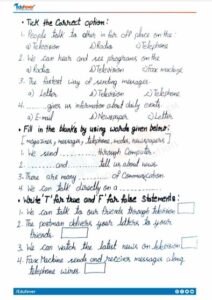 Eduhever
• Tick the Correct option:
1. People talk to other in far off place on the:
a) Television b) Radios c) Telephone
2. We can hear and see programs on the:
a) Radios b) Television c) Fax machine
3. The fastest way of sending messages:
a) Letter b) Television c) Telephone
4. ...... gives us information about daily events.
a) E-mail b) Newspaper c) Letter
• Fill in the blanks by using words given below:
[magazines, messages, telephone, modes, newspapers]
1. We send ............ through Computer.
2. ............ and ............ tell us about news
3. There are many ........... of Communication
4. We can talk directly on a ............
• Write 'T' for true and F' for false Statements:
1. We can talk to our friends through television
2. The postman delivers your letters to your
friends.
3. We can watch the latest news on television
4. Fax Machine sends and receives messages along
telephone wires.